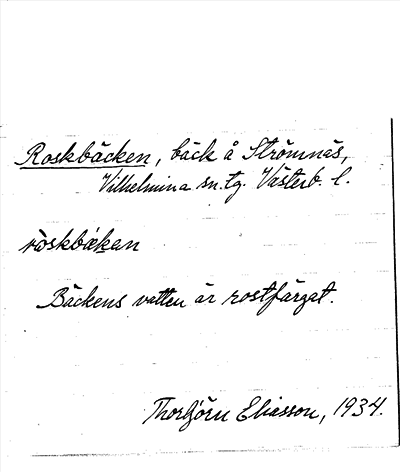 Roskbäcken, bäck å Strömnäs,
Vilhelmina sn. tg. Västerb. l.
ròskbæ̀kan
Bäckens vatten är rostfärgat.
Thorbjörn Eliasson, 1934.